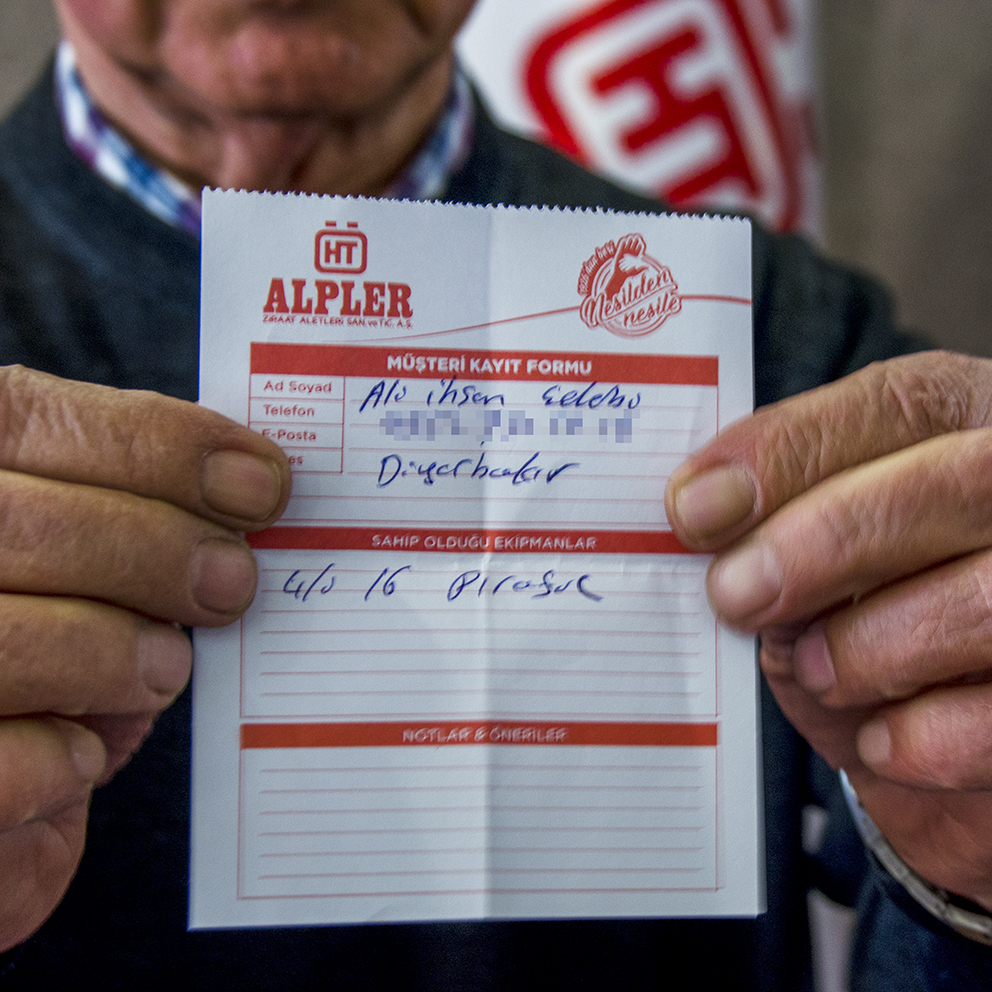 HT
HT
ALPLER
ZİRAAT ALETLERİ SAN. ve TİC. A.Ş.
Nesilden
nesile
MÜŞTERİ KAYIT FORMU
Ad Soyad Ali ihsan Çelebi
Telefon
E-Posta
Diyarbakır
SAHİP OLDUĞU EKİPMANLAR
4/0 16
NOTLAR & ÖNERİLER